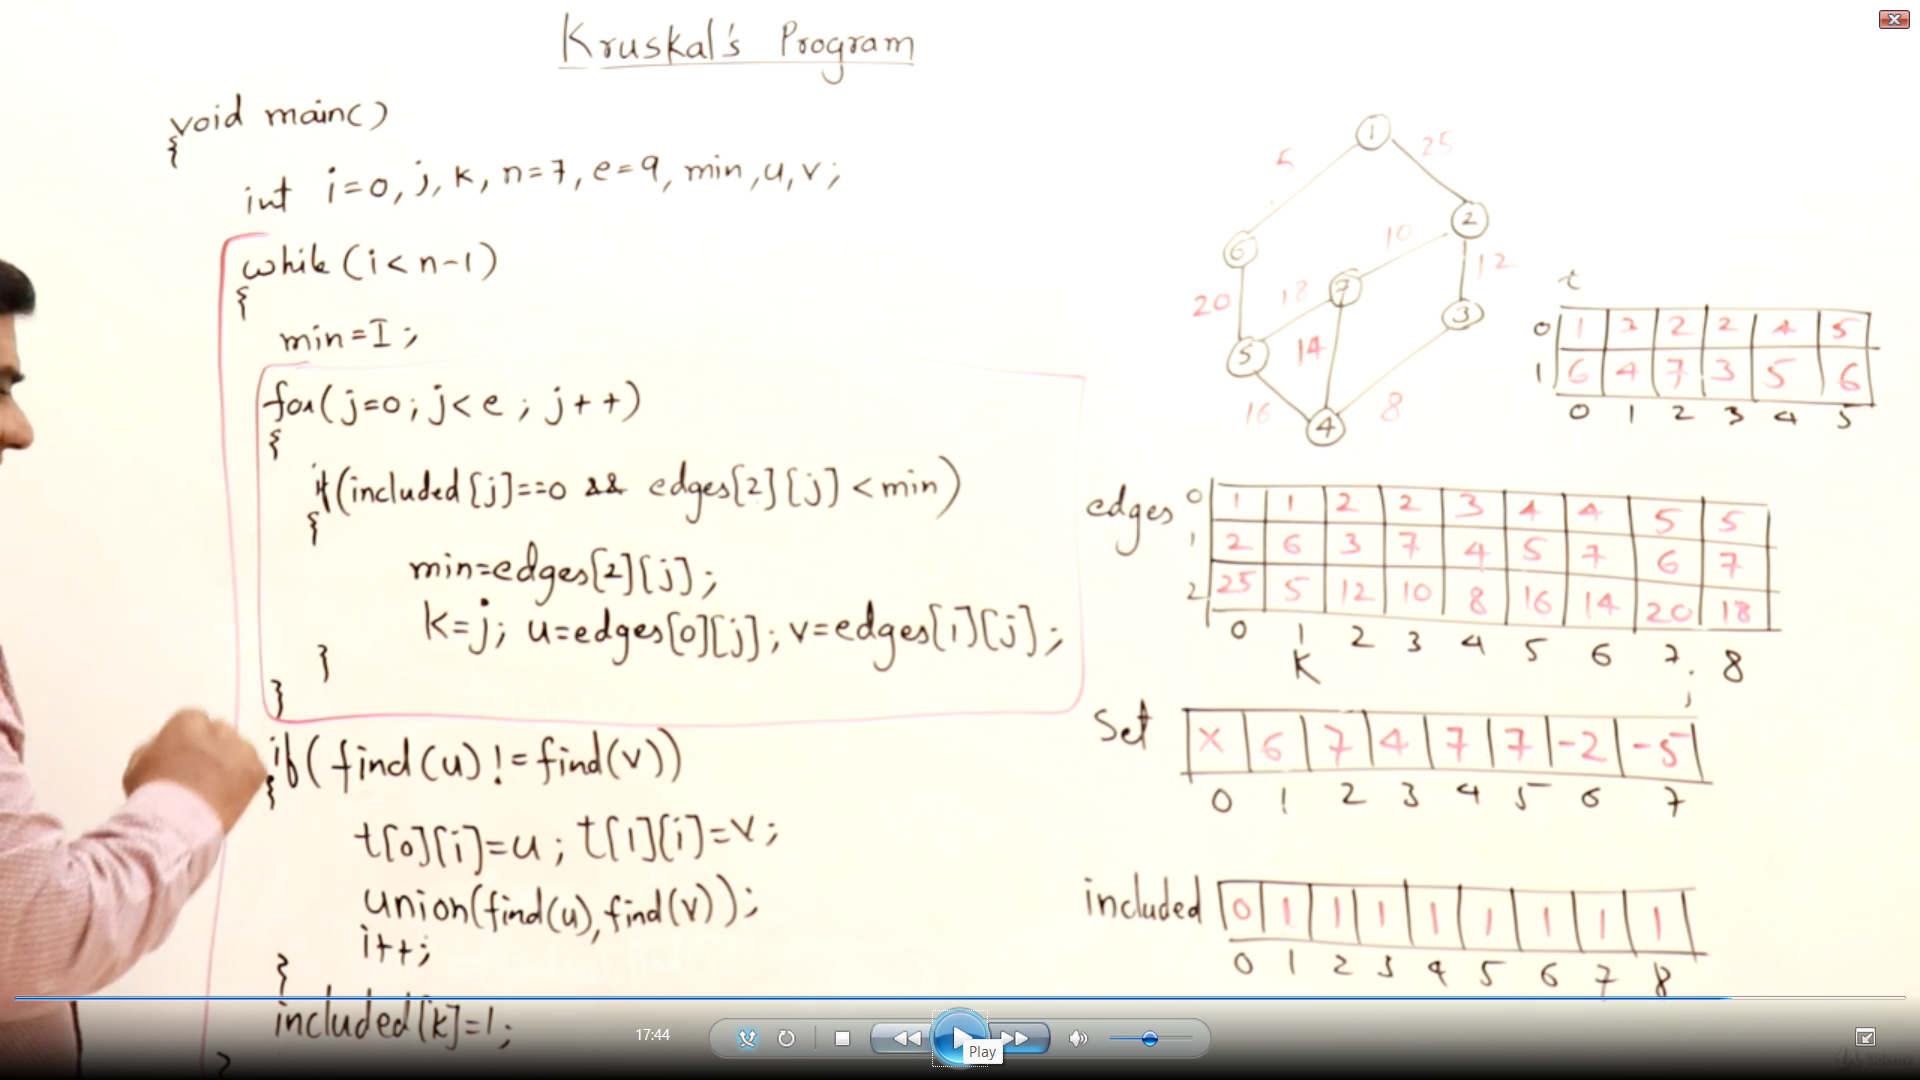 Kruskal's Program
void main()
{
int i=0, j, k, n=7, e=9, min, u, v;
while (i<n-1)
{
min=I;
for(j=0; j<e; j++)
{
if(included[j]==0 && edges[2][j]<min)
{
min=edges[2][j];
k=j; u=edges[0][j]; v=edges[1][j];
}
}
if(find(u)!=find(v))
{
t[0][i]=u; t[1][i]=v;
union(find(u),find(v));
i++;
}
included[k]=1;
}
1
5
25
2
6
10
12
18
7
20
3
5
14
16
8
4
t
0 1 3 2 2 4 5
1 6 4 7 3 5 6
0 1 2 3 4 5
edges
0 1 1 2 2 3 4 4 5 5
1 2 6 3 7 4 5 7 6 7
2 25 5 12 10 8 16 14 20 18
0 1 2 3 4 5 6 7 8
K
j
Set X 6 7 4 7 7 -2 -5
0 1 2 3 4 5 6 7
included 0 1 1 1 1 1 1 1 1
0 1 2 3 4 5 6 7 8
17:44
Play